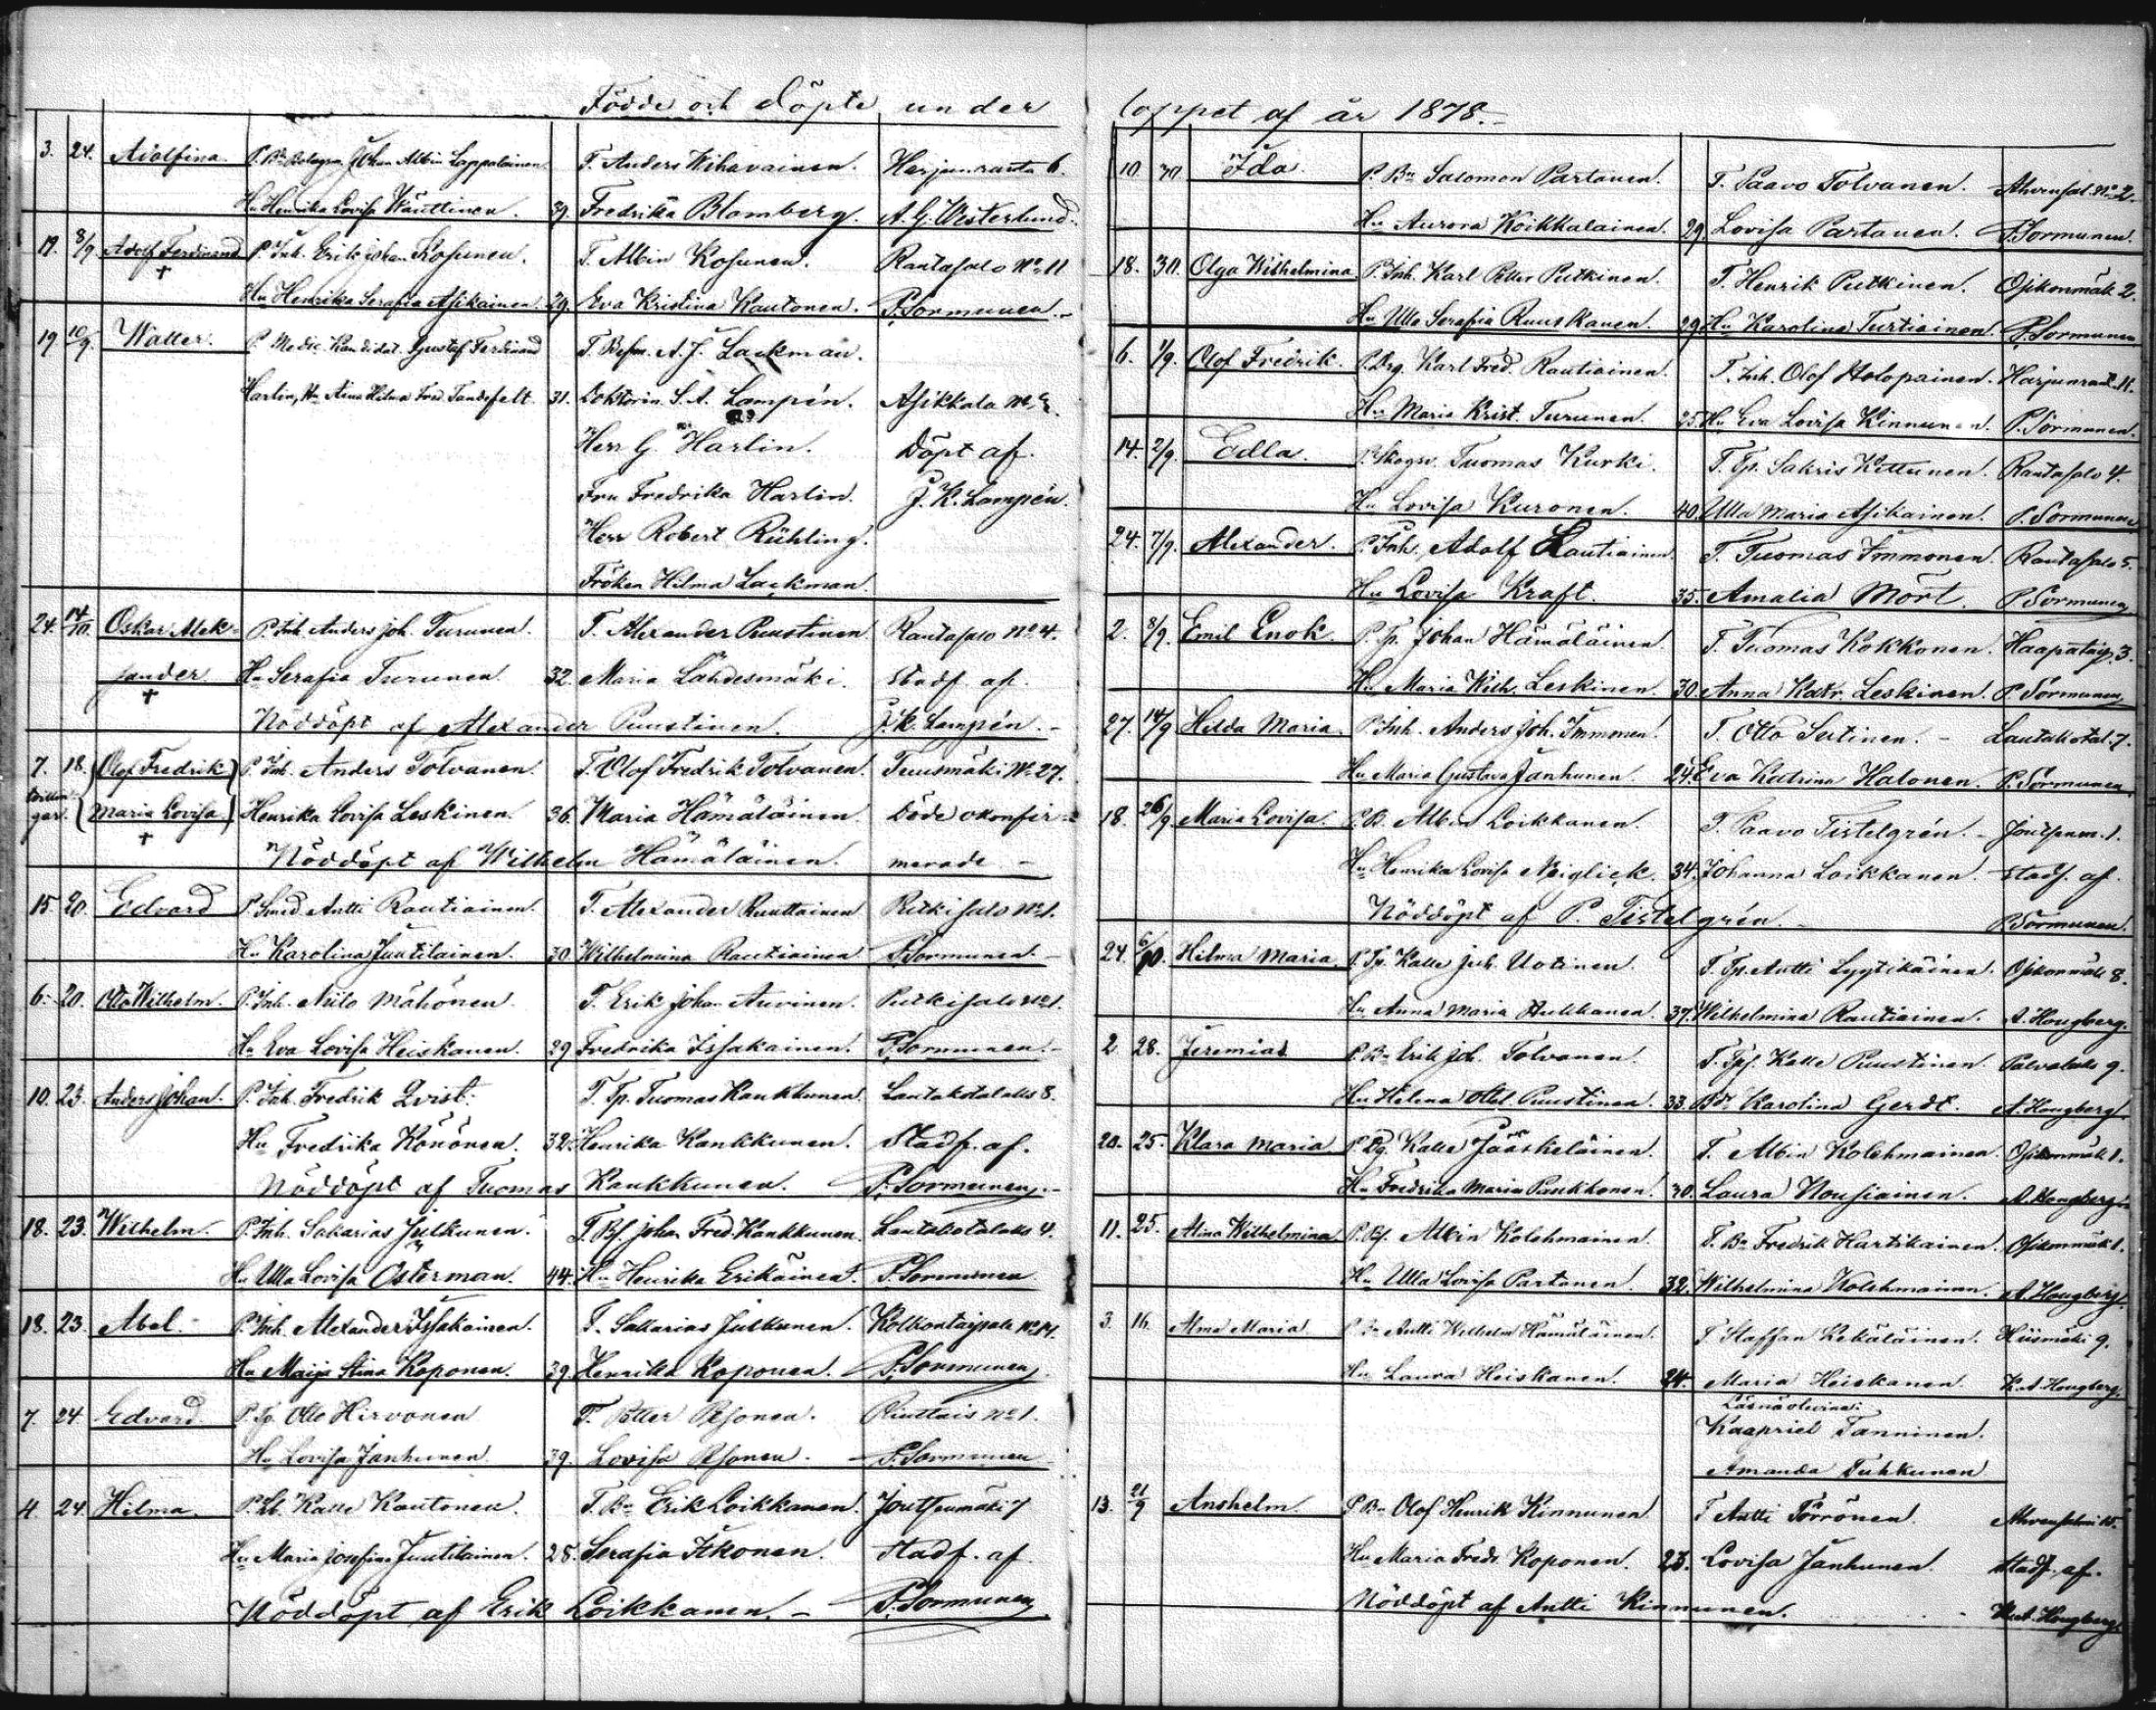 Födde och döpte under
3. 24. Adolfina. P. Johan Albin Lappalainen T. Anders Wihavainen. Harjunranta 6.
Hu Henrika Lovisa Wänttinen. 39. Fredrika Blomberg. A. G. Westerlund.
19. 8/9 Adolf Ferdinand P. Inh. Erik Johan Kosunen. T. Albin Kosunen. Rantasalo No 11
† Hu Henrika Serafia Asikainen 29. Eva Kristina Kautonen. P. Sormunen.
19 10/9. Walter. P. Medic. Kandidat. Gustaf Ferdinand T. Befm. A. J. Lackman.
Harlin, Hu Aina Hilma Fred. Tandefelt. 31. Doktorin. S. A. Lampén. Asikkala No
Herr G. Harlin. Döpt af
Fru Fredrika Harlin. J. K. Lampén.
Herr Robert Rühling.
Fröken Hilma Lackman.
24. 14/10. Oskar Alek- P. Inh. Anders Joh. Turunen. T. Alexander Puustinen. Rantasalo No 4.
sander Hu Serafia Turunen. 32. Maria Lähdesmäki. Stadf. af.
† Nöddöpt af Alexander Puustinen. J. K. Lampén.
7. 18. Olof Fredrik P. Inh. Anders Tolvanen. T. Olof Fredrik Tolvanen. Tuusmäki No 27.
tvillingar. Maria Lovisa Henrika Lovisa Leskinen. 36. Maria Hämäläinen. Döde okonfir-
† Nöddöpt af Wilhelm Hämäläinen. merade
15. 20. Edvard P. Smed Antti Rautiainen. T. Alexander Ruuttainen No 1.
Hu Karolina Juutilainen. 30. Wilhelmina Rautiainen P. Sormunen.
6. 20. Otto Wilhelm. P. Inh. Niilo Mähönen. T. Erik Johan Auvinen. Putkisalo No 1.
Hu Eva Lovisa Heiskanen. 29 Fredrika Issakainen. P. Sormunen.
10. 23. Anders Johan. P. Inh. Fredrik Qvist. T. Tp. Tuomas Kankkunen. Lautakotalaks 8.
Hu Fredrika Könönen. 32. Henrika Kankkunen. Stadf. af.
Nöddöpt af Tuomas Kankkunen. P. Sormunen.
18. 23. Wilhelm. P. Inh. Sakarias Julkunen. T. Bf. Johan Fred. Kankkunen. Lautakotalaks 4.
Hu Ulla Lovisa Österman. 44. Hu Henrika Erikäinen. P. Sormunen
18. 23. Abel. P. Inh. Alexander Issakainen. T. Sakarias Julkunen. Kolkontaipale No 14.
Hu Maija Stina Koponen. 39. Henrika Koponen. P. Sormunen.
7. 24. Edvard P. Tp. Otto Hirvonen T. Petter Pesonen. No 1.
Hu Lovisa Janhunen 39. Lovisa Pesonen. P. Sormunen
4 24. Hilma. P. Kalle Kautonen. T. Bn Erik Loikkanen. Joutsenmäki 7
Hu Maria Josefina Juutilainen. 28. Serafia Itkonen. Stadf. af
Nöddöpt af Erik Loikkanen. P. Sormunen
loppet af år 1878.
10. 30. Ida. P. Bn Salomon Partanen. T. Paavo Tolvanen. Ahvensal. No 2.
Hu Aurora Koikkalainen. 29. Lovisa Partanen. P. Sormunen.
18. 30. Olga Wilhelmina P. Inh. Karl Petter Putkinen. T. Henrik Putkinen. Ojkonmäk 2.
Hu Ulla Serafia Ruuskanen. 29. Hu Karolina Turtiainen. P. Sormunen
6. 1/9. Olof Fredrik. P. Drg. Karl Fred. Rautiainen. T. Inh. Olof Holopainen. Harjunrant. 11.
Hu Maria Krist. Turunen. 25. Hu Eva Lovisa Kinnunen. P. Sormunen.
14. 2/9. Edla. P. Skogv. Tuomas Kurki. T. Tp. Sakris Kettunen. Rantasalo 4.
Hu Lovisa Kuronen. 40. Ulla Maria Asikainen. P. Sormunen
24. 7/9. Alexander. P. Inh. Adolf Rautiainen. T. Tuomas Immonen. Rantasalo 5.
Hu Lovisa Kraft. 35. Amalia Mört. P. Sormunen
2. 8/9. Emil Enok. P. Tp. Johan Hämäläinen. T. Tuomas Kokkonen. Haapataip. 3.
Hu Maria Wilh. Leskinen. 30. Anna Katr. Leskinen. P. Sormunen
27. 14/9 Hilda Maria. P. Inh. Anders Joh. Immonen. T. Otto Sutinen. Lautakotal. 7.
Hu Maria Gustava Janhunen. 24. Eva Katrina Halonen. P. Sormunen.
18. 26/9 Maria Lovisa. P. B. Albin Loikkanen. T. Paavo Tistelgrén. Joutsenm. 1.
Hu Henrika Lovisa Neiglick. 34. Johanna Loikkanen. Stadf. af
Nöddöpt af P. Tistelgrén. P. Sormunen.
24. 6/10. Hilma Maria. P. Tp. Kalle Joh. Uotinen. T. Tp. Antti Lyytikäinen. Ojkonmäk 8.
Hu Anna Maria Pulkkanen. 37. Wilhelmina Rautiainen. A. Hougberg.
2 28. Jeremias P. Bn Erik Joh. Tolvanen. T. Tpf. Kalle Puustinen. 9.
Hu Helena Puustinen. 33. Karolina Gerdt. A. Hougberg.
20. 25. Klara Maria P. Dg. Kalle Jääskeläinen. T. Albin Kolehmainen. Ojkonmäk 1.
Hu Fredrika Maria Pankkonen. 30. Laura Nousiainen. A. Hougberg.
11. 25. Alina Wilhelmina P. Bf. Albin Kolehmainen. T. Bn Fredrik Hartikainen. Ojkonmäk 1.
Hu Ulla Lovisa Partanen. 32. Wilhelmina Kolehmainen. A. Hougberg.
3. 16. Alma Maria P. Bn Antti Wilhelm Hämäläinen. T. Staffan Kekäläinen. Hiismäki 9.
Hu Laura Heiskanen. 24. Maria Heiskanen. K. A. Hougberg.
Läsnäolevina:
Kaapriel Tanninen.
Amanda Tuhkunen
13. 21/9 Anshelm. P. Bn Olof Henrik Kinnunen T. Antti Törrönen. Ahvensalmi 15.
Hu Maria Fredr. Koponen. 23. Lovisa Janhunen. Stadf. af.
Nöddöpt af Antti Kinnunen. K. A. Hougberg.